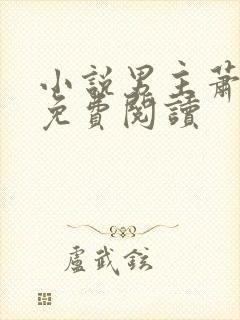 小說男主蕭
免費閱讀
盧武鉉